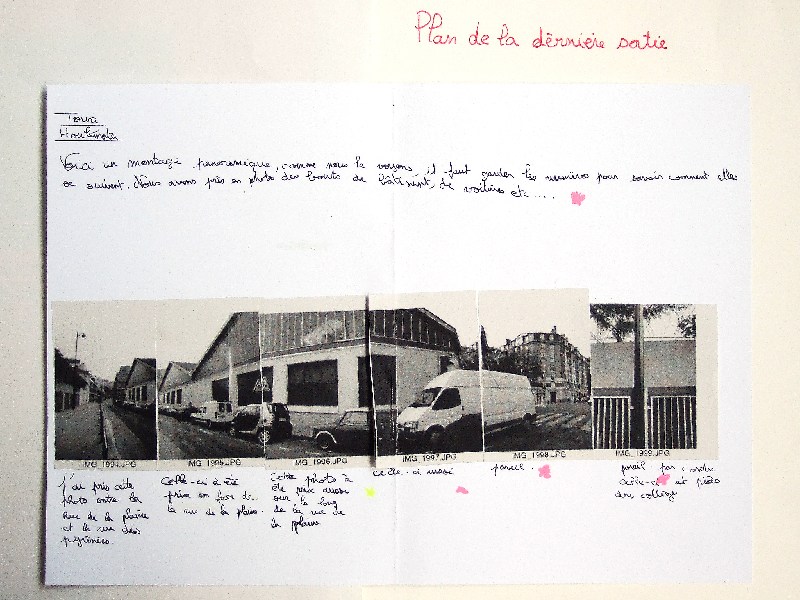 Plan de la dérnière sortie
Touré
Voici un montage panoramique, comme nous le voyons, il faut garder les numéros pour savoir comment elles
se suivent. Nous avons pris en photo des bouts de bâtiment, de voitures etc.....
IMG_1994.JPG
IMG_1995.JPG
IMG_1996.JPG
IMG_1997.JPG
IMG_1998.JPG
IMG_1999.JPG
j'ai pris cette
photo entre la
Rue de la plaine
et la rue des
pyrénées.
Celle-ci à été
prise en face de
la rue de la plaine.
Cette photo à
été prise aussi
sur le long
de la rue de
la plaine
celle-ci aussi
pareil.
pareil par contre
celle-ci est près
du collège